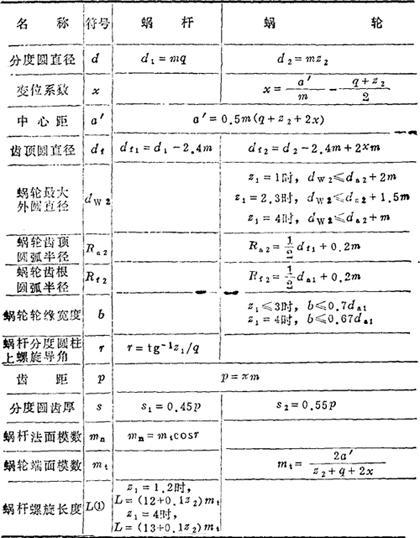 名 称 符号 蜗 杆 蜗 轮
分度圆直径 d d₁=mq d₂=mz₂
变位系数 x x=a′/m−(q+z₂)/2
中心距 a′ a′=0.5m(q+z₂+2x)
齿顶圆直径 df df1=d₁−2.4m df2=d₂−2.4m+2xm
蜗轮最大
外圆直径 dW2
z₁=1时, dW2≤da2+2m
z₁=2.3时, dW2≤da2+1.5m
z₁=4时, dW2≤da2+m
蜗轮齿顶
圆弧半径 Ra2 Ra2=1/2df1+0.2m
蜗轮齿根
圆弧半径 Rf2 Rf2=1/2da1+0.2m
蜗轮轮缘宽度 b
z₁≤3时, b≤0.7da1
z₁=4时, b≤0.67da1
蜗杆分度圆柱
上螺旋导角 r r=tg⁻¹z₁/q
齿 距 p p=πm
分度圆齿厚 s s₁=0.45p s₂=0.55p
蜗杆法面模数 mn mn=mtcosr
蜗轮端面模数 mt mt=2a′/(z₂+q+2x)
蜗杆螺旋长度 L①
z₁=1.2时,
L=(12+0.1z₂)mt
z₁=4时,
L=(13+0.1z₂)mt